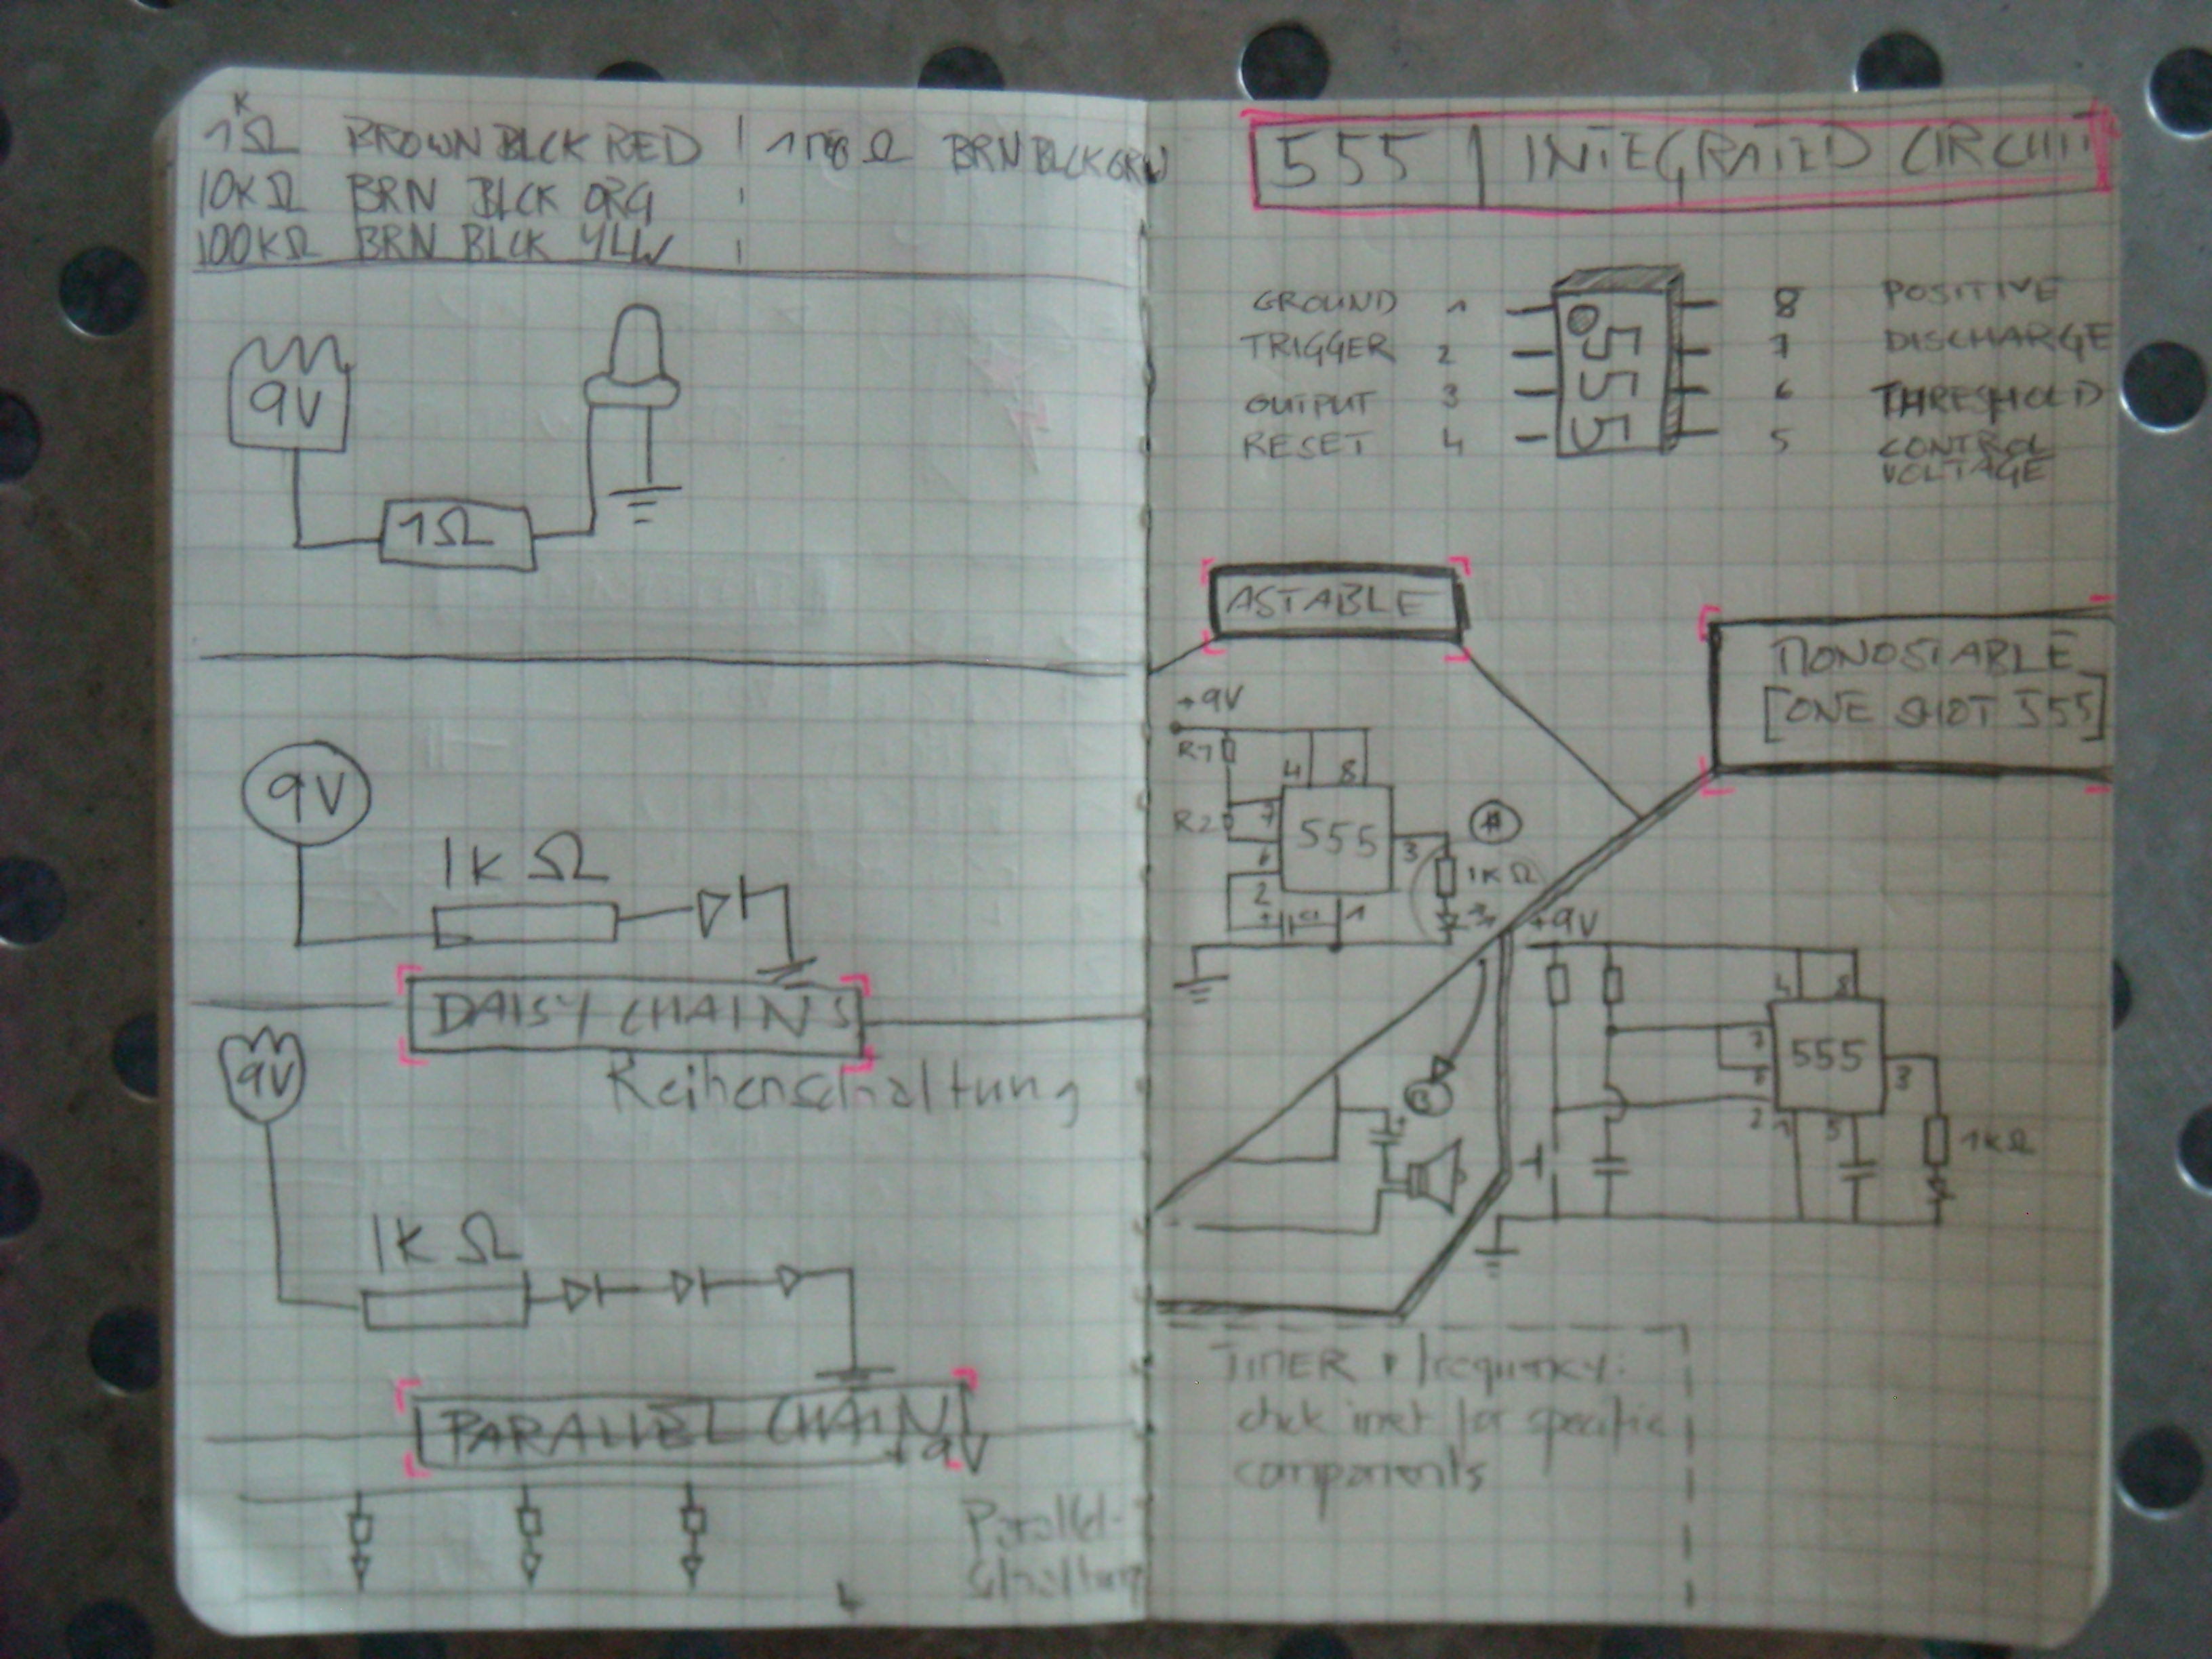 1KΩ BROWN BLCK RED | 1MΩ BRN BLCK GRN
10KΩ BRN BLCK ORG |
100KΩ BRN BLCK YLLW |
9V
1Ω
9V
1K Ω
DAISY CHAINS
Reihenschaltung
9V
1K Ω
PARALLEL CHAIN
+9V
Parallel-
schaltung
555 | INTEGRATED CIRCUIT
GROUND 1 8 POSITIVE
TRIGGER 2 7 DISCHARGE
OUTPUT 3 6 THRESHOLD
RESET 4 5 CONTROL
VOLTAGE
555
ASTABLE
MONOSTABLE
[ONE SHOT 555]
+9V
R1
4 8
R2 7 555
6 3 1KΩ
2
+ 1
+9V
4 8
7 555
6 3
2 1 5
1KΩ
+
TIMER + frequency:
check inet for specific
components